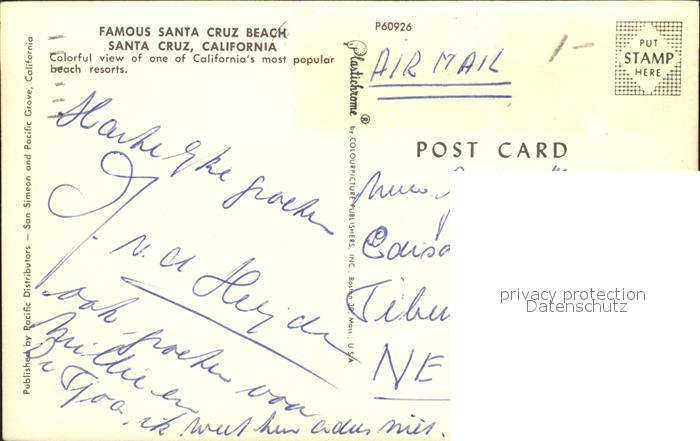 FAMOUS SANTA CRUZ BEACH
SANTA CRUZ, CALIFORNIA
Colorful view of one of California's most popular
beach resorts.
Published by Pacific Distributors — San Simeon and Pacific Grove, California
Hartelijke groeten
J. v. d. Heijden
ook groeten van
en
Tjoa, ik weet hun adres niet.
Plastichrome ® by COLOURPICTURE PUBLISHERS, INC., Boston 30, Mass., U.S.A.
P60926
AIR MAIL
1-
PUT
STAMP
HERE
POST CARD
NE
privacy protection
Datenschutz